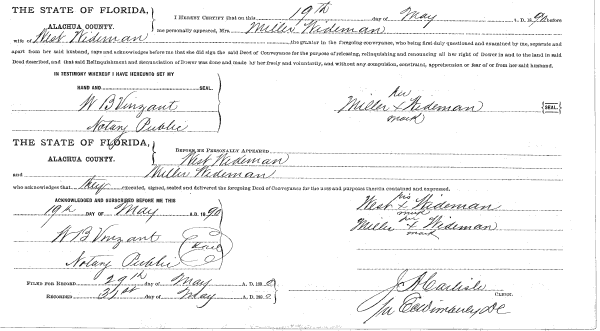 THE STATE OF FLORIDA,
ALACHUA COUNTY.
I HEREBY CERTIFY that on this 19th day of May A. D. 1890 before
me personally appeared, Mrs. Miller Wideman
wife of West Wideman the grantor in the foregoing conveyance, who being first duly questioned and examined by me, separate and
apart from her said husband, says and acknowledges before me that she did sign the said Deed of Conveyance for the purpose of releasing, relinquishing and renouncing all her right of Dower in and to the land in said
Deed described, and that said Relinquishment and Renunciation of Dower was made by her freely and voluntarily, and without any compulsion, constraint, apprehension or fear of or from her said husband.
IN TESTIMONY WHEREOF I HAVE HEREUNTO SET MY
HAND AND SEAL.
W B Vinzant
Notary Public
her
Miller x Wideman {SEAL.}
mark
THE STATE OF FLORIDA,
ALACHUA COUNTY.
BEFORE ME PERSONALLY APPEARED
West Wideman
and Miller Wideman
who acknowledges that they executed, signed, sealed and delivered the foregoing Deed of Conveyance for the uses and purposes therein contained and expressed.
ACKNOWLEDGED AND SUBSCRIBED BEFORE ME THIS
19th DAY OF May A. D. 1890
W B Vinzant
Notary Public
Seal
his
West x Wideman
mark
her
Miller x Wideman
mark
FILED FOR RECORD 29th day of May A. D. 1890
RECORDED 31st day of May A. D. 1890
J A Carlisle
CLERK.